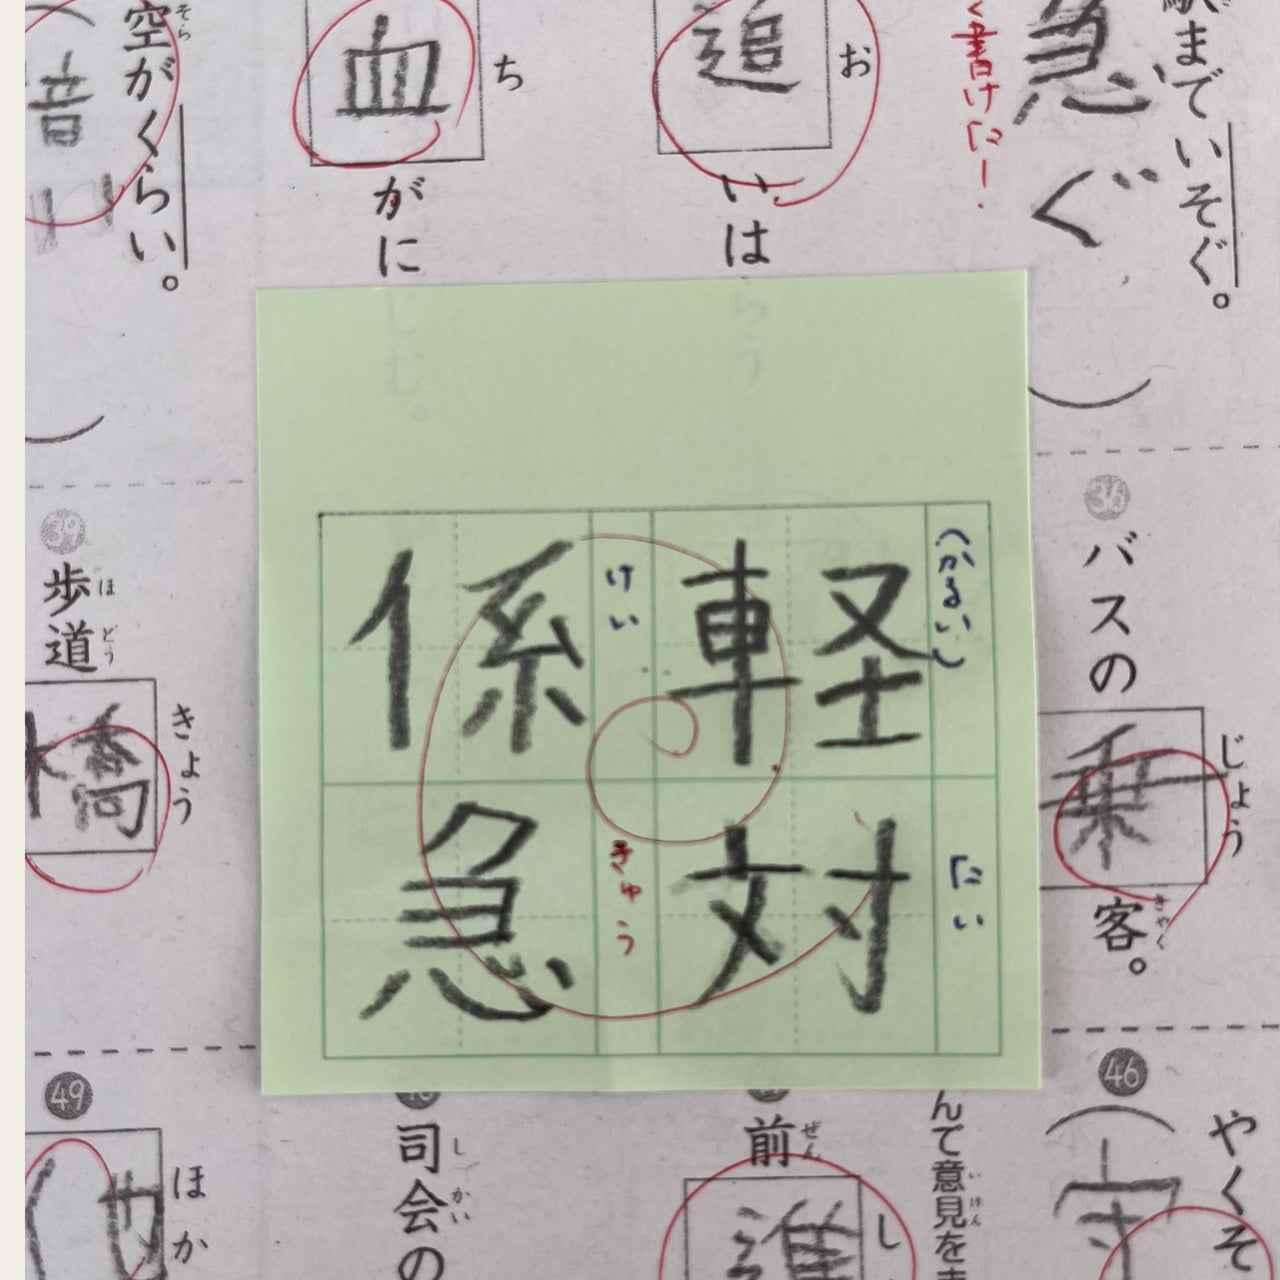 駅までいそぐ。
急ぐ
書けた!
お
追
いは
ち
血
がに
空がくらい。
そら
36
バスの
じょう
乗
客。
きゃく
(かるい)
軽
たい
対
けい
係
きゅう
急
39
歩道
ほどう
きょう
橋
46
やくそ
んで意見を
いけん
前
ぜん
し
進
司会の
しかい
49
ほか
他